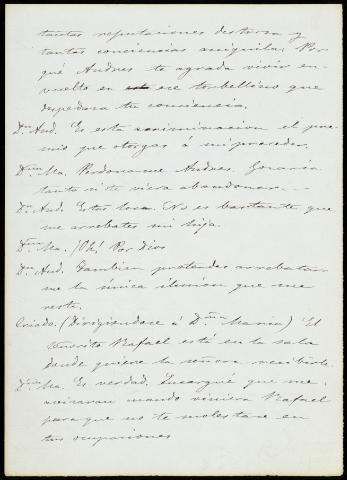 tantas reputaciones destroza y
tantas conciencias aniquila. Por
qué Andres te agrada vivir en-
vuelto en ese torbellino que
despedaza tu conciencia.
Dn. And. Es esta recriminacion el pre-
mio que otorgas á mi proceder.
Dña. Ma. Perdoname Andres. Gozaria
tanto si te viera abandonar...
Dn. And. Estas loca. No es bastante que
me arrebates mi hija.
Dña. Ma. ¡Oh! Por Dios
Dn. And. Tambien pretendes arrebatar
me la única ilusion que me
resta.
Criado. (Dirigiendose á Dña. Maria) El
Señorito Rafael está en la sala
donde quiere la señora recibirle.
Dña. Ma. Es verdad. Encargué que me
avisaran cuando viniera Rafael
para que no te molestase en
tus ocupaciones